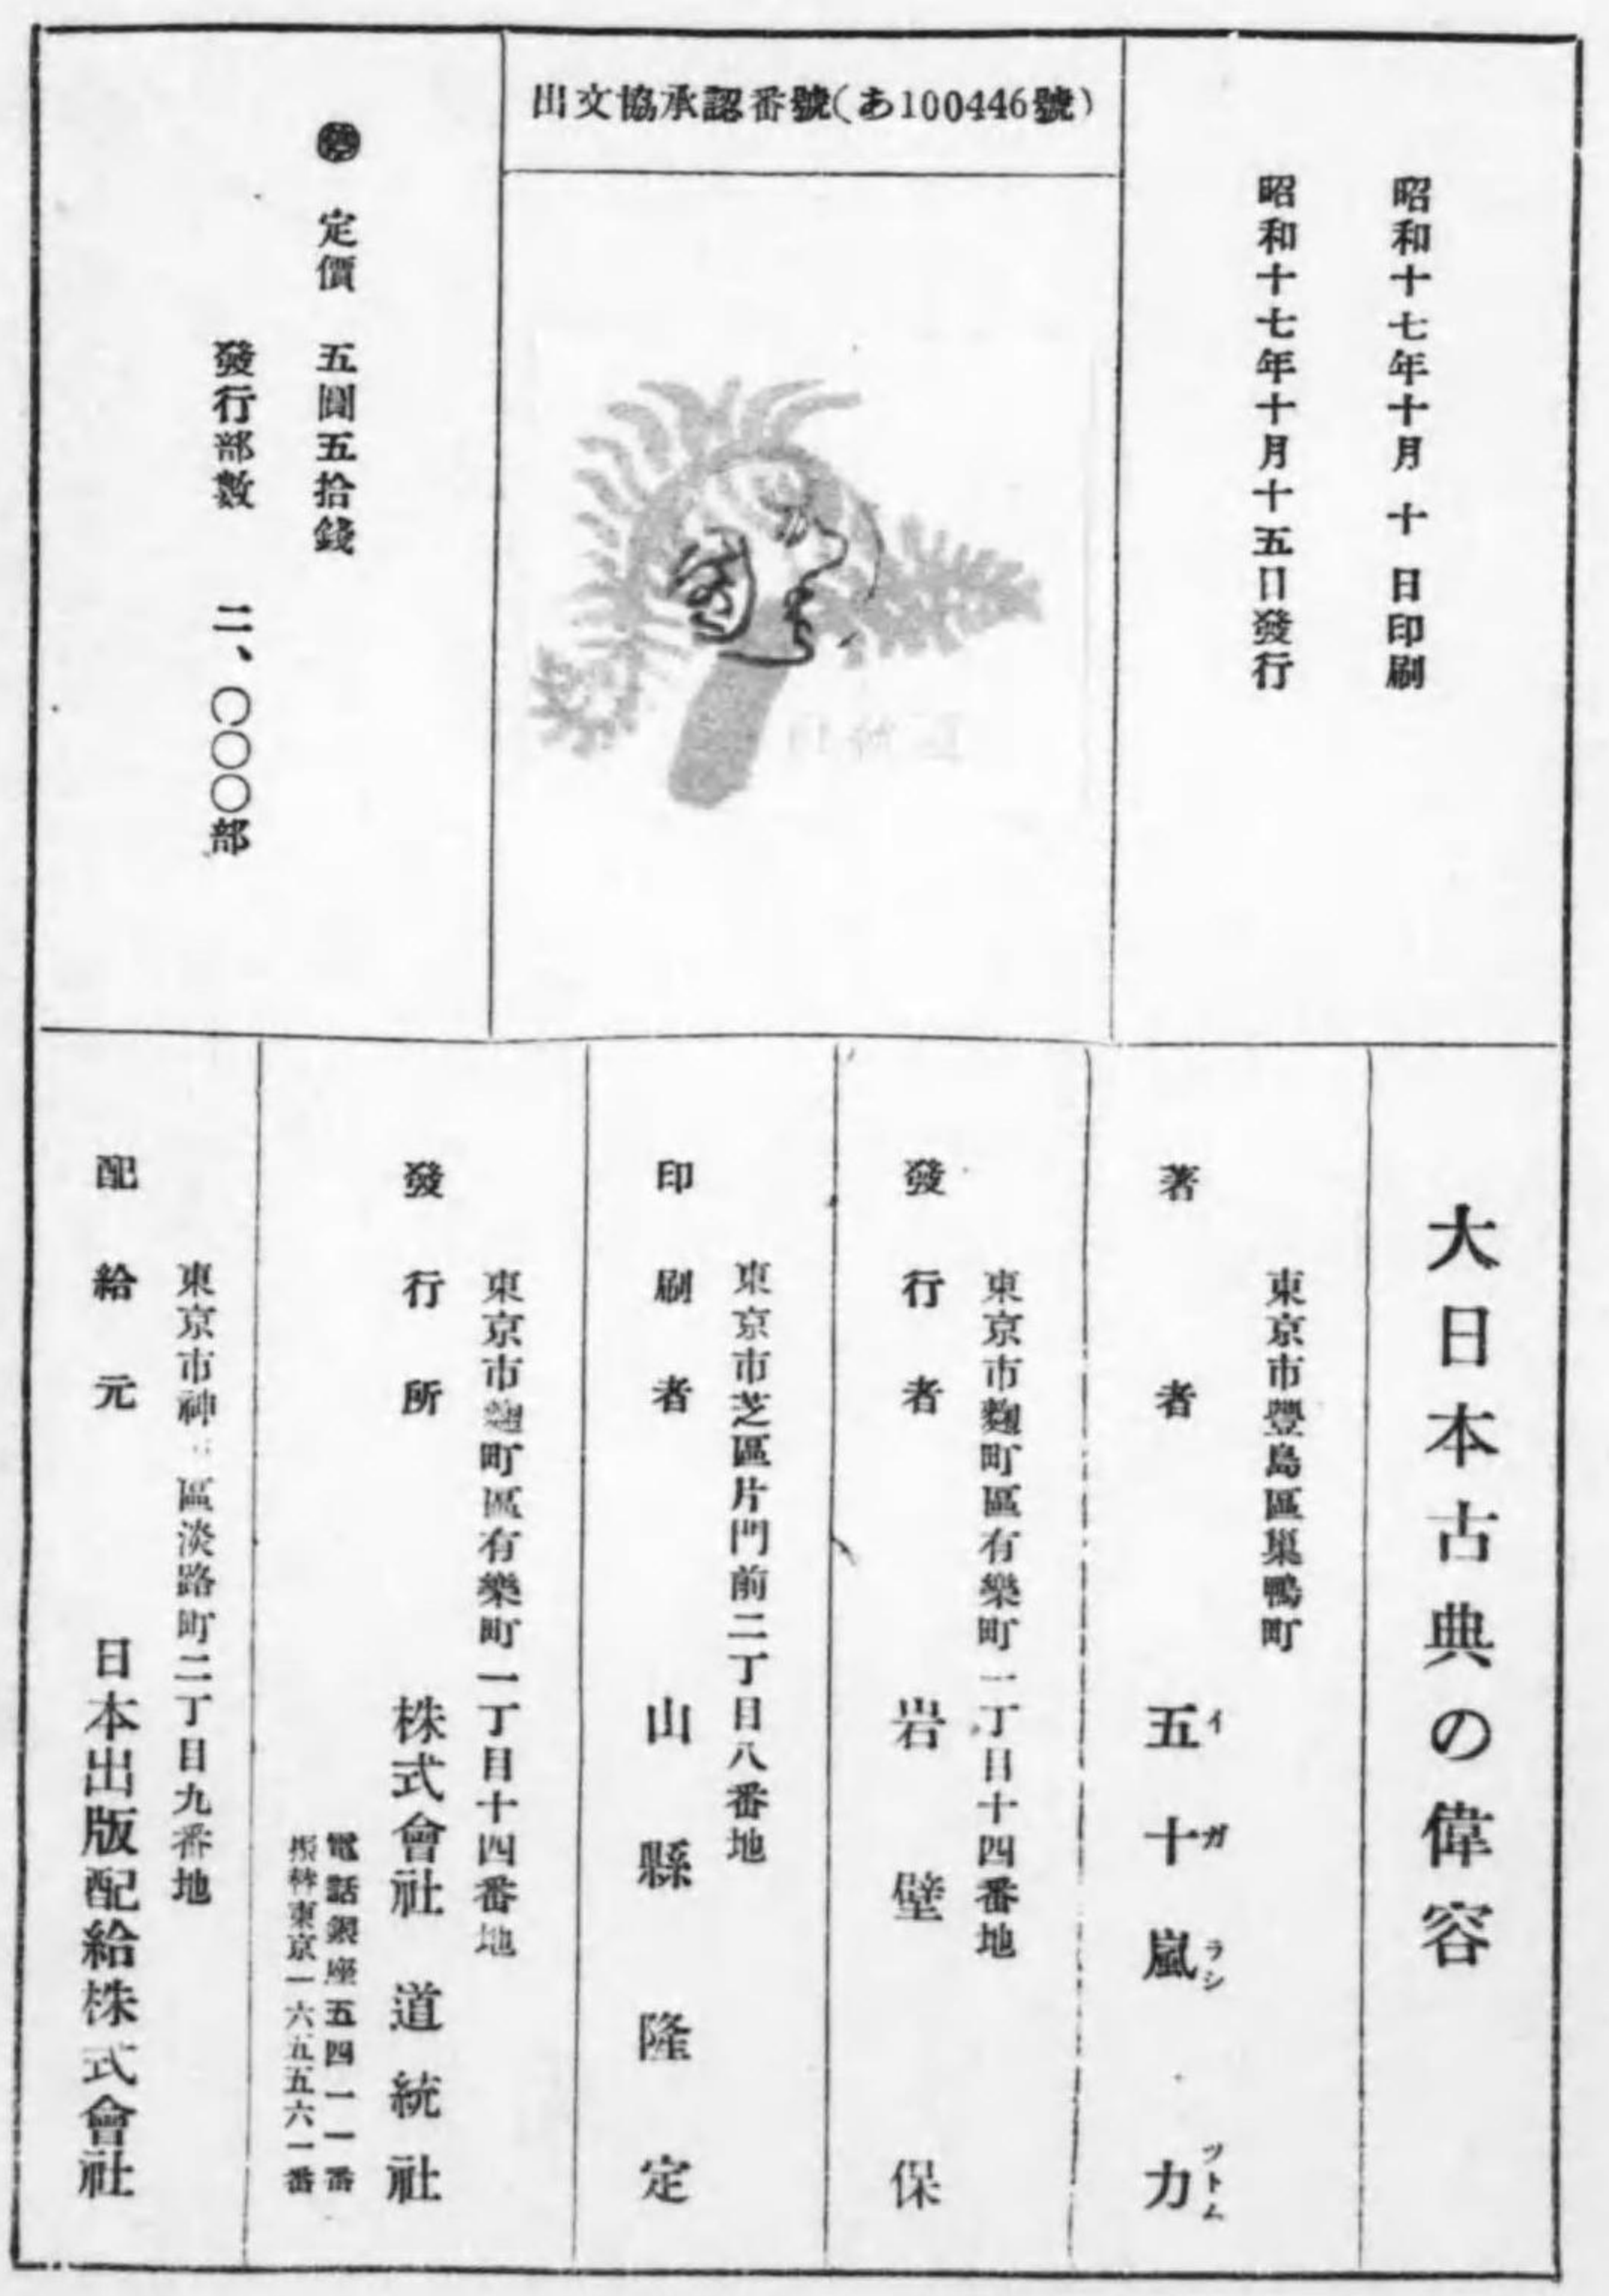 出文協承認番號(あ100446號)
昭和十七年十月十日印刷
昭和十七年十月十五日發行
定價 五圓五拾錢
發行部數 二、〇〇〇部
大日本古典の偉容
東京市豐島區巢鴨町
著者 五十嵐力
イガラシ ツトム
東京市麴町區有樂町一丁目十四番地
發行者 岩壁保
東京市芝區片門前二丁目八番地
印刷者 山縣隆定
東京市麴町區有樂町一丁目十四番地
發行所 株式會社 道統社
電話銀座五四一一番
振替東京一六五五六一番
東京市神 區淡路町二丁目九番地
配給元 日本出版配給株式會社